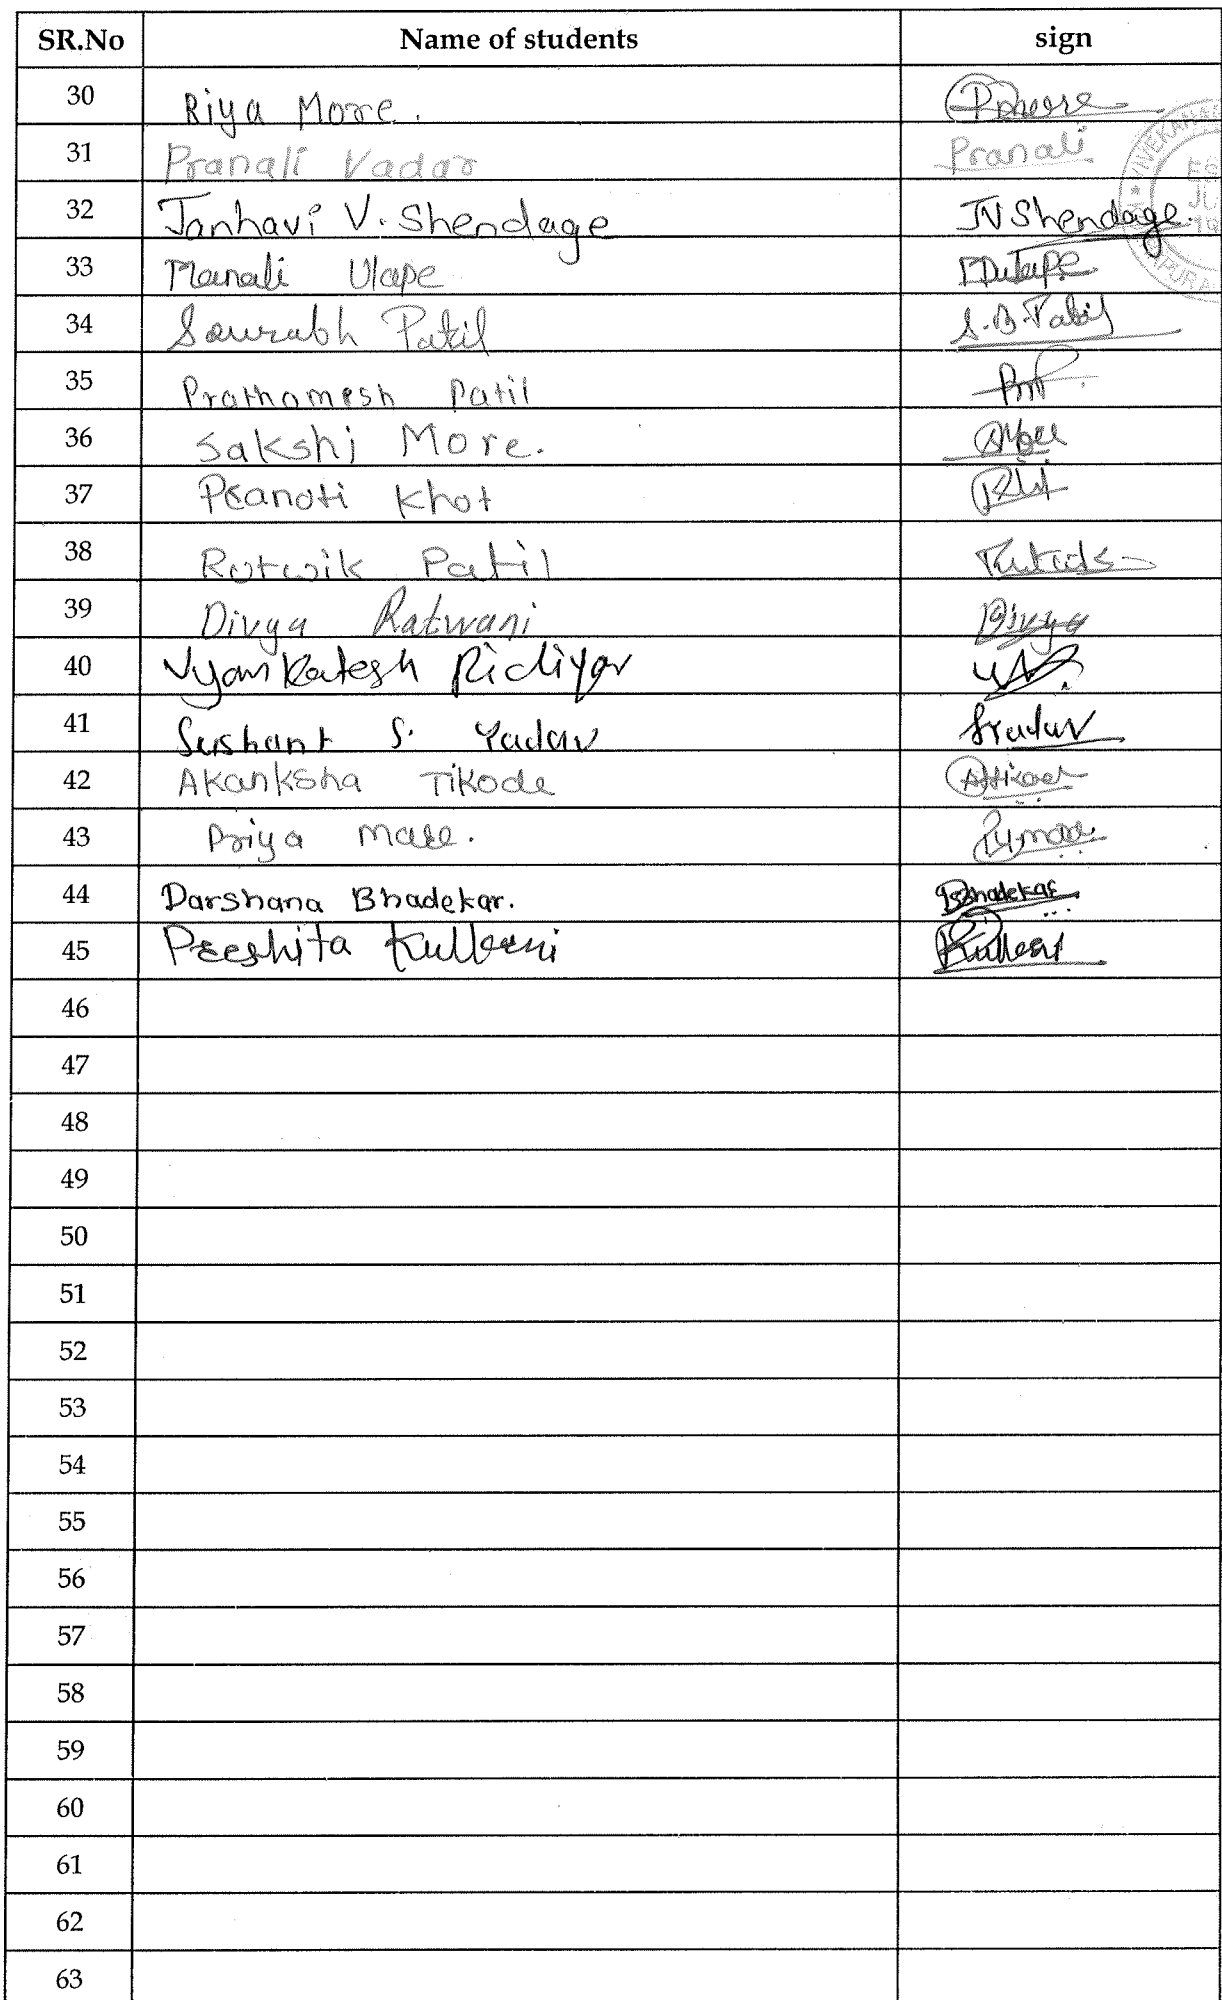 SR.No Name of students sign
30 Riya More.
31 Pranali Vadar Pranali
32 Janhavi V. Shendage JVShendage.
33 Manali Ulape
34 Saurabh Patil S.B.Patil
35 Prathamesh Patil
36 Sakshi More.
37 Pranoti Khot
38 Rutwik Patil
39 Divya Ratwani Divya
40 Vyankatesh Ridiyar
41 Sushant S. Yadav
42 Akanksha Tikode
43 Priya
44 Darshana Bhadekar. Bhadekar
45
46
47
48
49
50
51
52
53
54
55
56
57
58
59
60
61
62
63